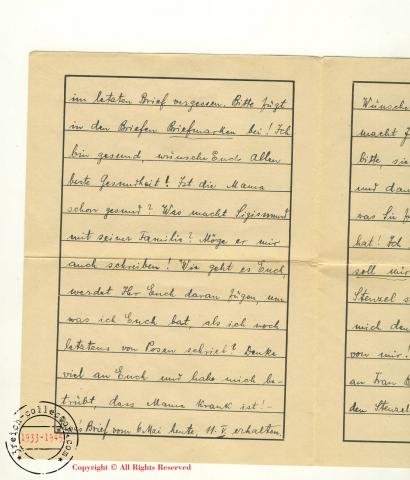 im letzten Brief vergessen. Bitte fügt
in den Briefen Briefmarken bei! Ich
bin gesund, wünsche Euch Allen
beste Gesundheit! Ist die Mama
schon gesund? Was macht Sigismund
mit seiner Familie? Möge er mir
auch schreiben! Wie geht es Euch,
werdet Ihr Euch daran fügen, um
was ich Euch bat, als ich noch
letztens von Posen schrieb? Denke
viel an Euch und habe mich be-
trübt dass Mama krank ist! -
Brief vom 6 Mai heute, 11. V. erhalten.
Wünsche
macht
bitte, sie
und dan
was Sie
hat! Ich
soll mir
Stenzel s
mich den
von mir!
an Frau
den Stenzel
1933-1945
Copyright © All Rights Reserved